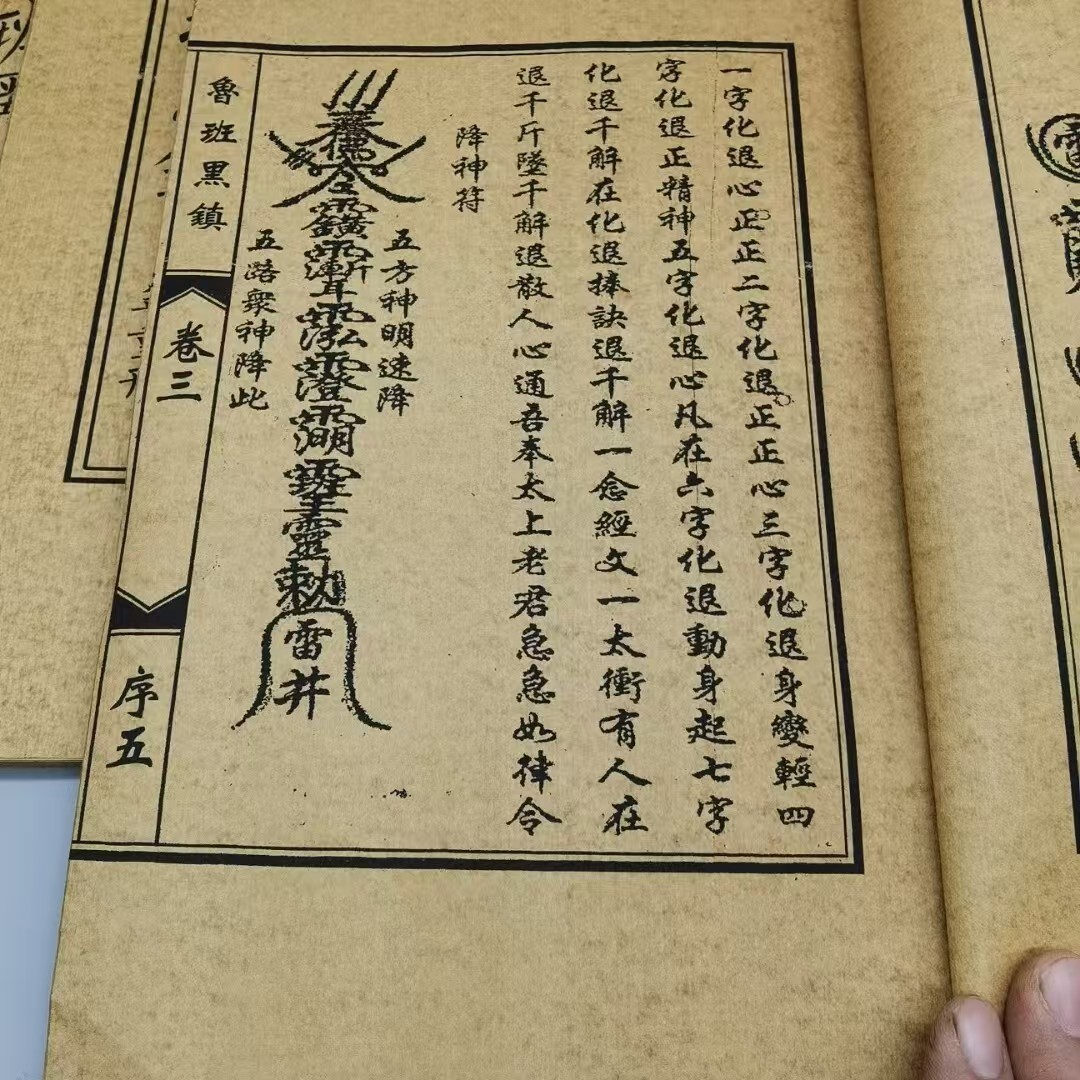 一字化退心正正二字化退正正心三字化退身變輕四
字化退正精神五字化退心凡在六字化退動身起七字
化退千解在化退捧訣退千解一念經文一太衝有人在
退千斤墜千解退散人心通吾奉太上老君急急如律令
降神符
五方神明速降
勅
雷井
五路眾神降此
魯班黑鎮
卷三
序五